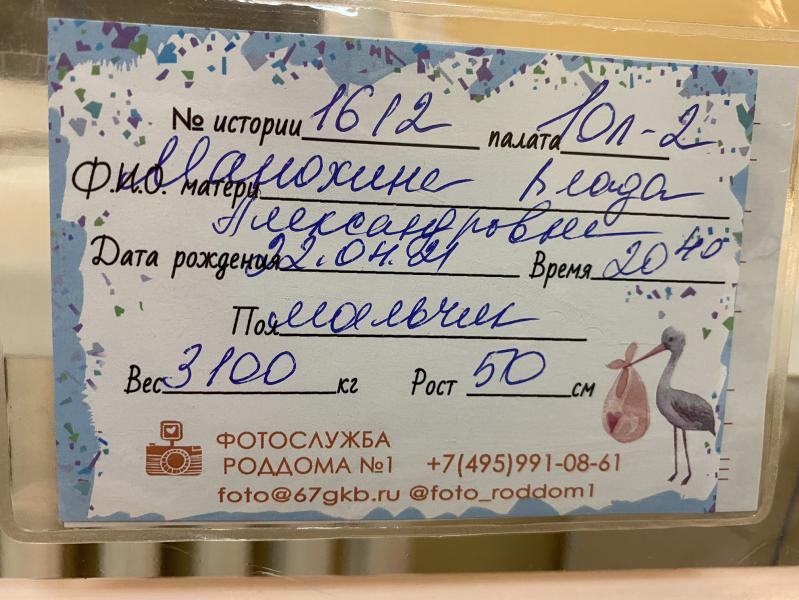 № истории 1612 палата 10л-2
Ф.И.О. матери Манохина Влада
Александровна
Дата рождения 22.04.21 Время 20 40
Пол мальчик
Вес 3100 кг Рост 50 см
ФОТОСЛУЖБА
РОДДОМА №1 +7(495)991-08-61
foto@67gkb.ru @foto_roddom1